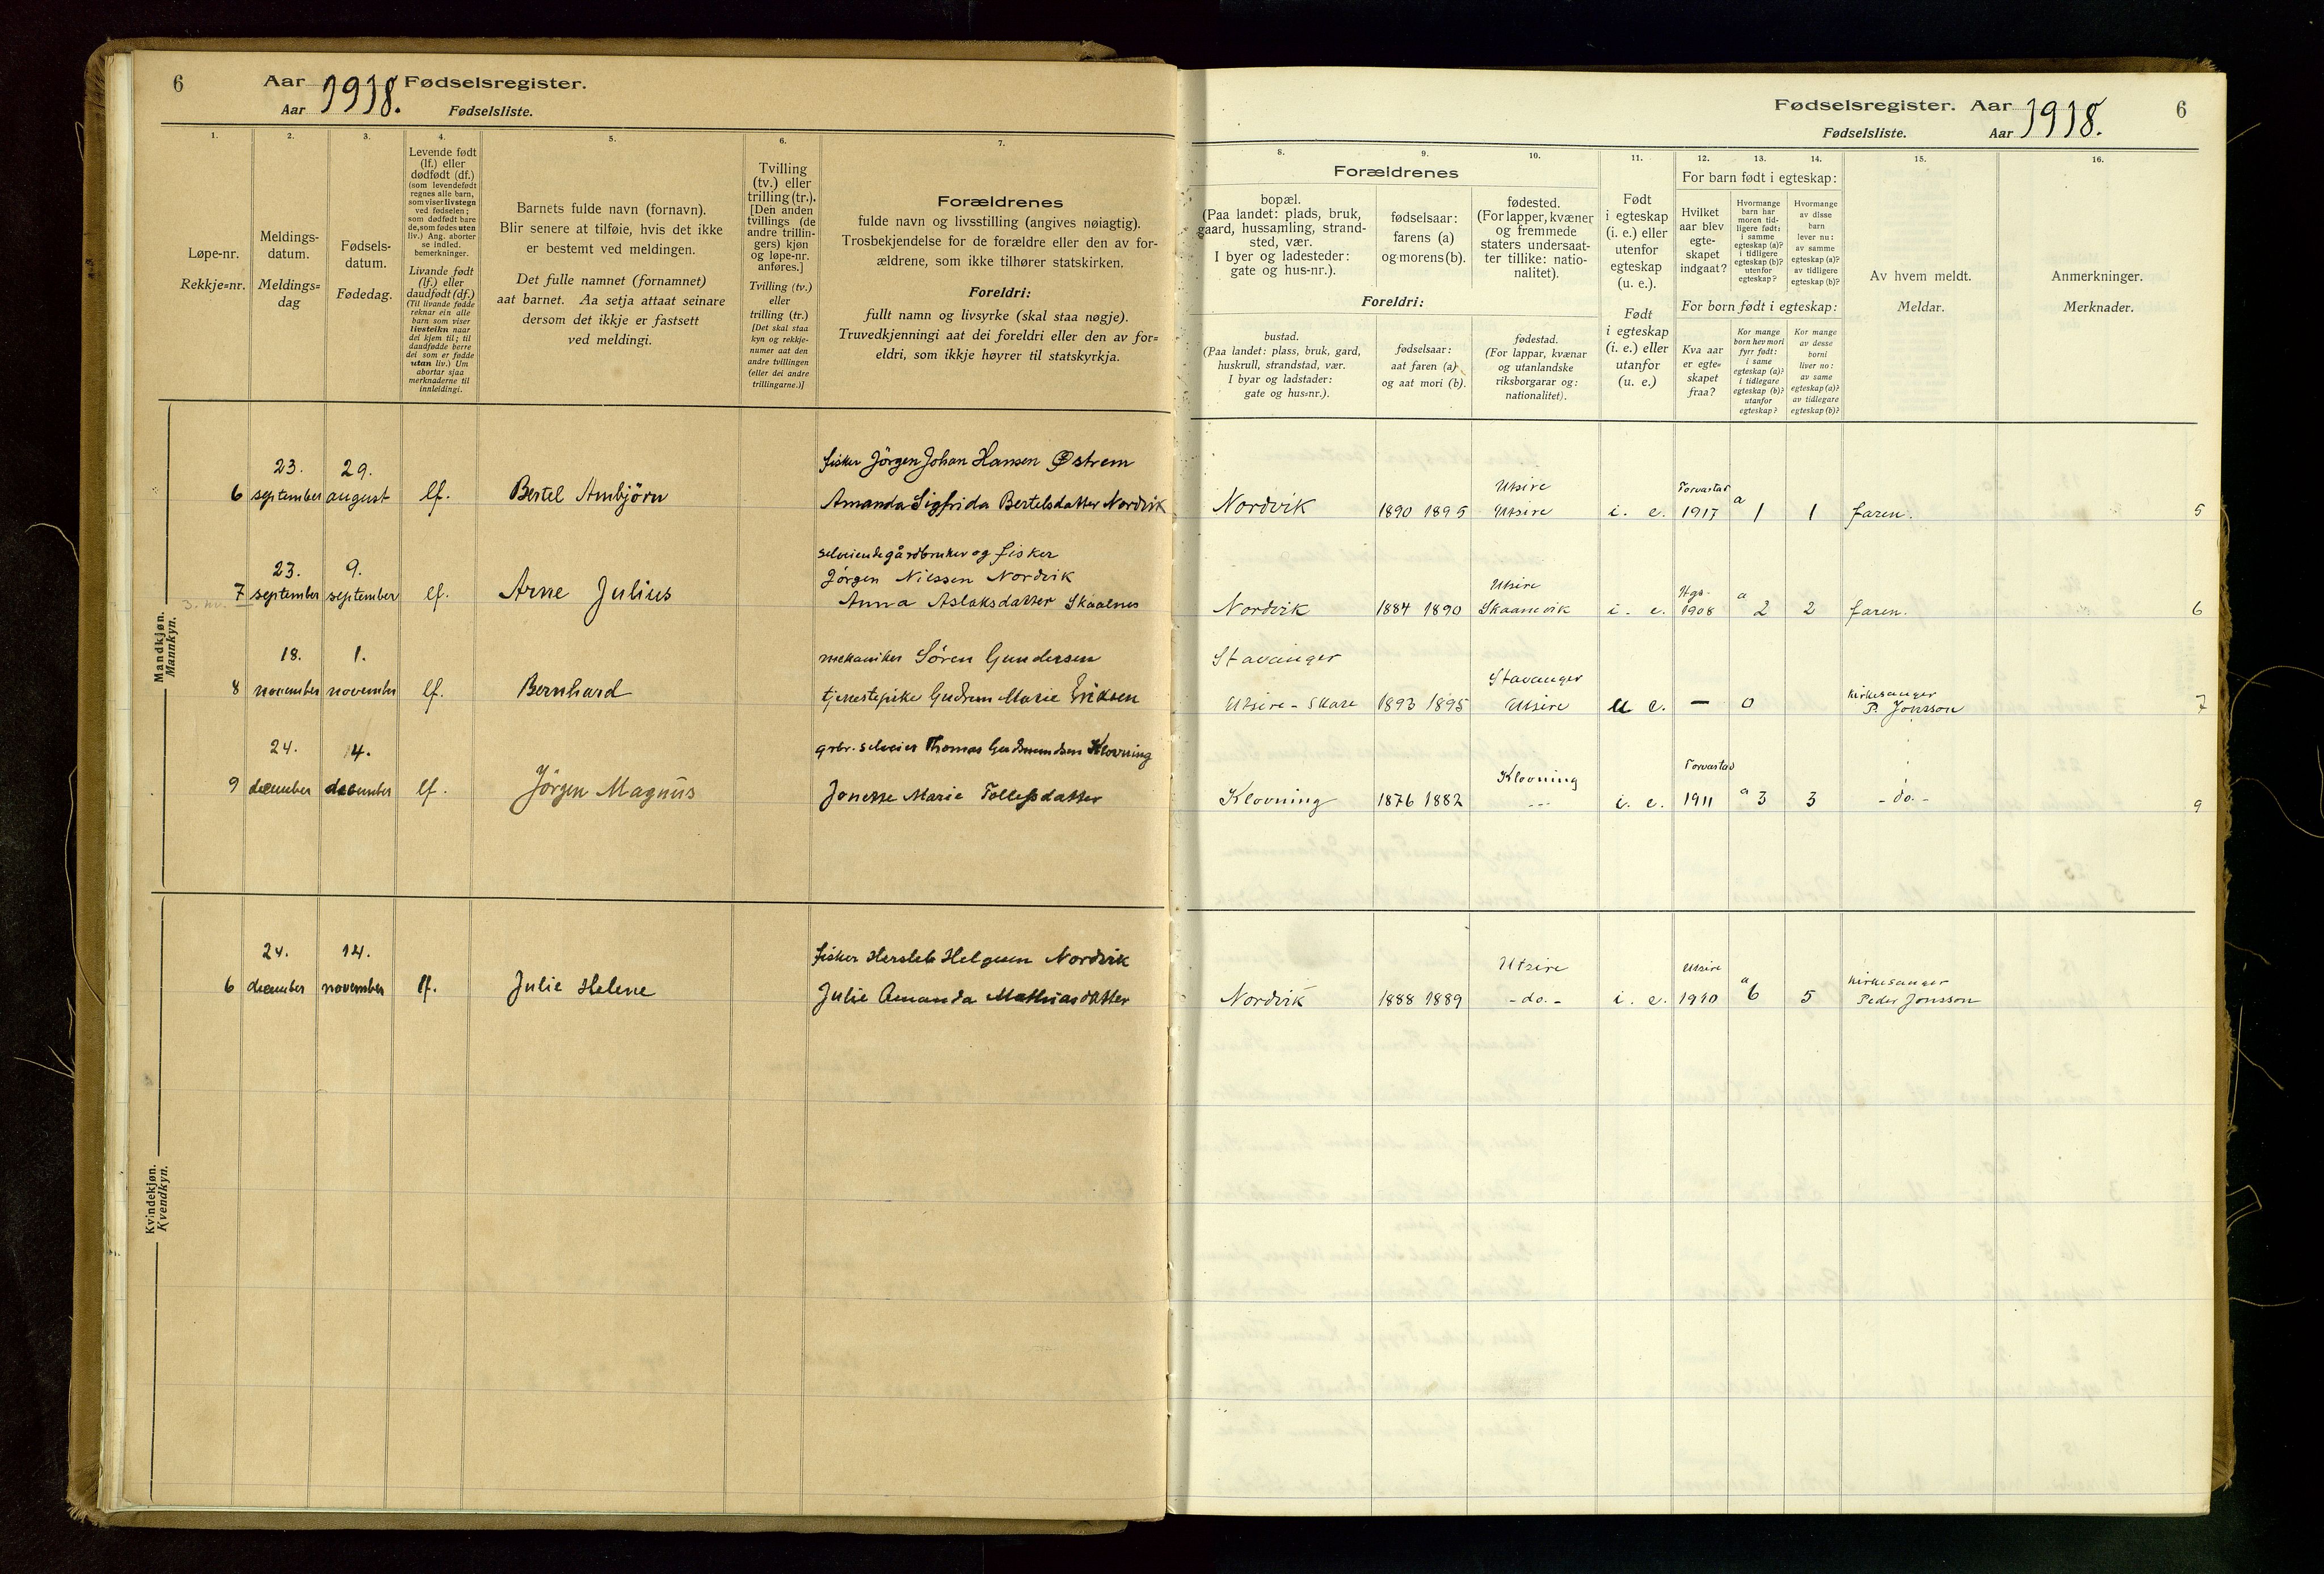 6 Aar 1918. Fødselsregister.
Aar Fødselsliste.
Fødselsregister. Aar 1918. 6
Fødselsliste. Aar
1. 2. 3. 4. 5. 6. 7.
Løpe-nr.
Rekkje=nr.
Meldings-
datum.
Meldings=
dag
Fødsels-
datum.
Fødedag.
Levende født
(lf.) eller
dødfødt (df.)
(som levendefødt
regnes alle barn,
som viser livstegn
ved fødselen;
som dødfødt bare
de, som fødes uten
liv.) Ang. aborter
se indled.
bemerkninger.
Livande født
(lf.) eller
daudfødt (df.)
(Til livande fødde
reknar ein alle
barn som viser
livsteikn naar
dei kjem til; til
daudfødde berre
dei som er fødde
utan liv.) Um
abortar sjaa
merknaderne til
innleidingi.
Barnets fulde navn (fornavn).
Blir senere at tilføie, hvis det ikke
er bestemt ved meldingen.
Det fulle namnet (fornamnet)
aat barnet. Aa setja attaat seinare
dersom det ikkje er fastsett
ved meldingi.
Tvilling
(tv.) eller
trilling (tr.).
[Den anden
tvillings (de
andre trillin-
gers) kjøn
og løpe-nr.
anføres.]
Tvilling (tv.)
eller
trilling (tr.)
[Det skal staa
kyn og rekkje-
numer aat den
andre tvillingen
(eller dei andre
trillingarne.)]
Forældrenes
fulde navn og livsstilling (angives nøiagtig).
Trosbekjendelse for de forældre eller den av for-
ældrene, som ikke tilhører statskirken.
Foreldri:
fullt namn og livsyrke (skal staa nøgje).
Truvedkjenningi aat dei foreldri eller den av for=
eldri, som ikkje høyrer til statskyrkja.
8. 9. 10. 11. 12. 13. 14. 15. 16.
Forældrenes
bopæl.
(Paa landet: plads, bruk,
gaard, hussamling, strand-
sted, vær.
I byer og ladesteder:
gate og hus-nr.).
fødselsaar:
farens (a)
og morens (b).
fødested.
(For lapper, kvæner
og fremmede
staters undersaat-
ter tillike: natio-
nalitet).
Foreldri:
bustad.
(Paa landet: plass, bruk, gard,
huskrull, strandstad, vær.
I byar og ladstader:
gate og hus=nr.).
fødselsaar:
aat faren (a)
og aat mori (b).
fødestad.
(For lappar, kvænar
og utanlandske
riksborgarar og:
nationalitet).
Født
i egteskap
(i. e.) eller
utenfor
egteskap
(u. e.).
Født
i egteskap
(i. e.) eller
utanfor
(u. e.)
For barn født i egteskap:
Hvilket
aar blev
egte-
skapet
indgaat?
Hvormange
barn har
moren tid-
ligere født:
i samme
egteskap (a)?
i tidligere
egteskap (b)?
utenfor
egteskap?
Hvormange
av disse
barn
lever nu:
av samme
egteskap (a)?
av tidligere
egteskap (b)?
For born født i egteskap:
Kva aar
er egte=
skapet
fraa?
Kor mange
born hev mori
fyrr født:
i same
egteskap (a)?
i tidlegare
egteskap (b)?
utanfor
egteskap?
Kor mange
av desse
borni
liver no:
av same
egteskap (a)?
av tidlegare
egteskap (b)?
Av hvem meldt.
Meldar.
Anmerkninger.
Merknader.
Mandkjøn.
Mannkyn.
23. 29. fisker Jörgen Johan Hansen Østrem Utsire Torvastad
6 september august lf. Bertel Arnbjörn Amanda Sigfrida Bertelsdatter Nordvik Nordvik 1890 1895 Utsire i. e. 1917 a 1 1 faren. 5
selveiende gårdbruker og fisker
23. 9. Jörgen Nilssen Nordvik Utsire
7 september september lf. Arne Julius Anna Aslaksdatter Skaalnes Nordvik 1884 1890 Skaanevik i. e. 1908 a 2 2 faren. 6
18. 1. mekaniker Sören Gundersen Stavanger Stavanger kirkesanger
8 november november lf. Bernhard tjenestepike Gudrun Marie Eriksen Utsire - Skare 1893 1895 Utsire u e. — 0 P. Jonsson 7
24. 14. grbr. selveier Thomas Gudmundsen Klovning Klovning Torvastad
9 december december lf. Jörgen Magnus Jonette Marie Tollefsdatter Klovning 1876 1882 --- i. e. 1911 a 3 3 - do. - 9
Kvindekjøn.
Kvendkyn.
24. 14. fisker Hersleb Helgesen Nordvik Utsire Utsire kirkesanger
6 december november lf. Julie Helene Julie Amanda Mathiasdatter Nordvik 1888 1889 - do. - i. e. 1910 a 6 5 Peder Jonsson